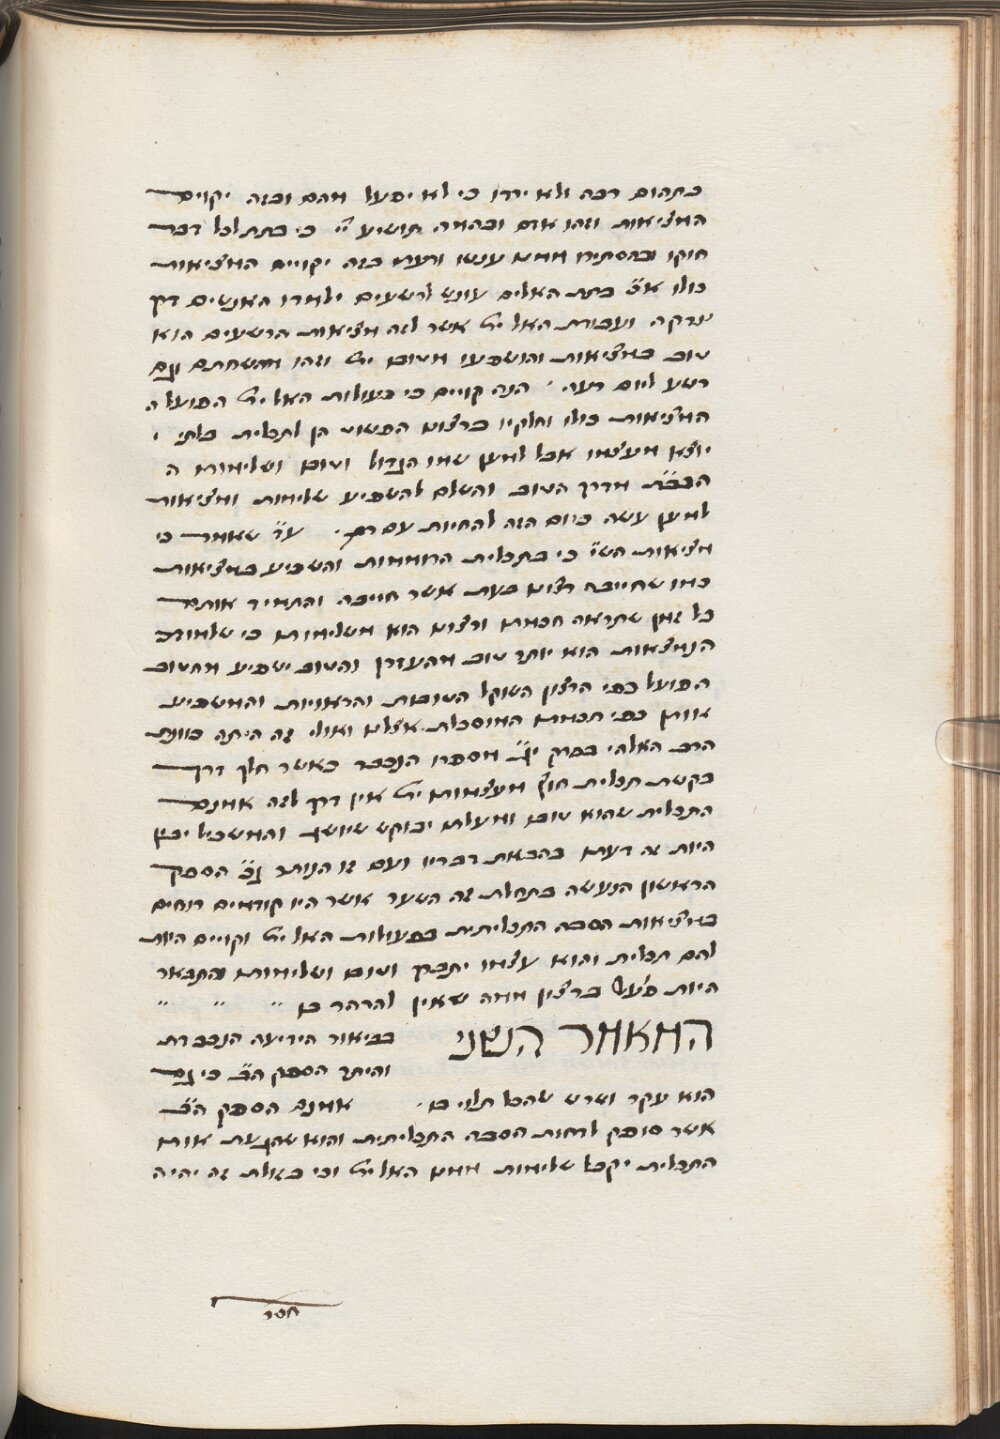 כתהום רבה ולא ירדו כי לא יפעל מהם ובזה יקוים
המציאות וזהו אדם ובהמה תושיע יי כי בתת לכל דבר
חוקו ובהסתירו ממנו ענשו ורעתו בזה יקויים המציאות
כולו אמנם בתת האלים עונש לרשעים ילמדו האנשים דרך
צדקה ועבודת האל ית' אשר לזה מציאות הרשעים הוא
טוב במציאות והושפעו מטובו ית' וזהו מהשחתם וגם
רשע ליום רעה הנה קויים כי פעולות האל ית' הפועל ה
המציאות כולו וחלקיו ברצונו הפשוט הן לתכלית בלתי י
יוצא מעצמו אבל למען שמו הגדול וטובו ושלימותו ה
מדרך הטוב והשלם להשפיע שלימות ומציאות
למען עשה כיום הזה להחיות עם רב שאומר כי
מציאות השי' כי בתכלית הרוממות והשפיע במציאות
כמו שחייבה רצונו בעת אשר חייבה והתמיד אותם
כל זמן שתראה חכמתו ורצונו הוא משלימותו כי שלמות
הנמצאות הוא יותר טוב מהעדרן והטוב ישפיע מהטוב
הפועל כפי הרצון השוקל הטובות והראויות והמשפיע
אותו כפי חכמתו המוסכלת אצלנו ואולי זה היתה כוונת
הרב האלהי בפרק י"ג מספרו הנכבד כאשר הלך דרך
בקשת תכלית חוץ מעצמותו ית' אין דרך לזה אמנם
התכלית שהוא טובו ומעלתו יבוקש שיושג והמשכיל יבין
היות זה דעתו בהבאת דבריו ועם זו הותר ג"כ הספק
הראשון הנעשה בתחלת זה השער אשר היו קודמים דוחים
במציאות הסבה התכליתית בפעולות האל ית' וקויים היות
להם תכלית והוא עצמו יתברך וטובו ושלימותו והתבאר
היות פועל ברצון ממה שאין להרהר בו
המאמר השני בביאור הידיעה הנכבדת
והיתר הספק הב' כי גם
הוא עקר ושרש שהכל תלוי בו אמנם הספק הב'
אשר סופק לדחות הסבה התכליתית והוא שהגעת אותו
התכלית יקבל שלימות ממנו האל ית' וכי באלת זה יהיה
חסר